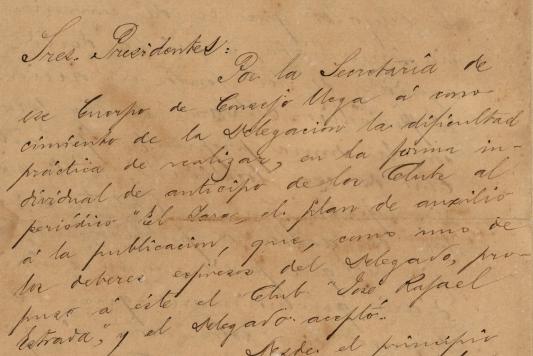 Sres. Presidentes:
Por la Secretaría de
ese Cuerpo de Consejo llega á cono-
cimiento de la Delegacion la dificultad
práctica de realizar, en la forma in-
dividual de anticipo de los Clubs al
periódico "El Yara", el plan de auxilio
á la publicacion, que, como uno de
los deberes expresos del Delegado, pro-
puso á éste el Club "José Rafael
Estrada", y el Delegado aceptó.
Desde el principio